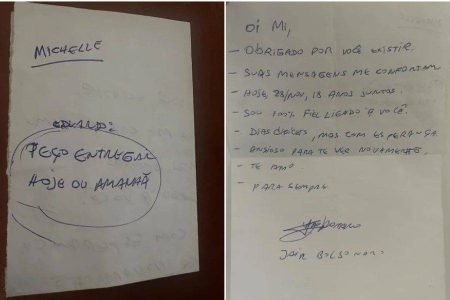 MICHELLE
PEÇO ENTREGAR
HOJE OU AMANHÃ
Oi Mi,
- OBRIGADO POR VOCÊ EXISTIR.
- SUAS MENSAGENS ME CONFORTAM
- HOJE, 28/NOV, 18 ANOS JUNTOS.
- SOU 100% FEL LIGADO A VOCÊ.
- DIAS DIFÍCEIS, MAS COM ESPERANÇA
- ANSIOSO PARA TE VER NOVAMENTE.
- TE AMO
- PARA SEMPRE
JAIR BOLSONARO